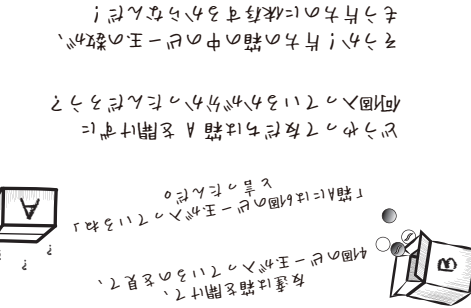 友達は箱を開けて、
4個のビー玉が入っているのを見て、
B
? ? ?
A
「箱Aには6個のビー玉が入っているね」
と言ったんだ。
どうやって友だちは箱 A を開けずに
何個入っているかが分かったんだろう？
そうか！片方の箱の中のビー玉の数が、
もう片方のに依存するからなんだ！